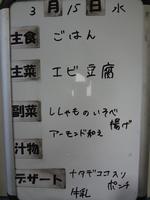 3月15日水
主食 ごはん
主菜 エビ豆腐
副菜 ししゃものいそべ
揚げ
アーモンド和え
汁物
デザート ナタデココ入り
ポンチ
牛乳